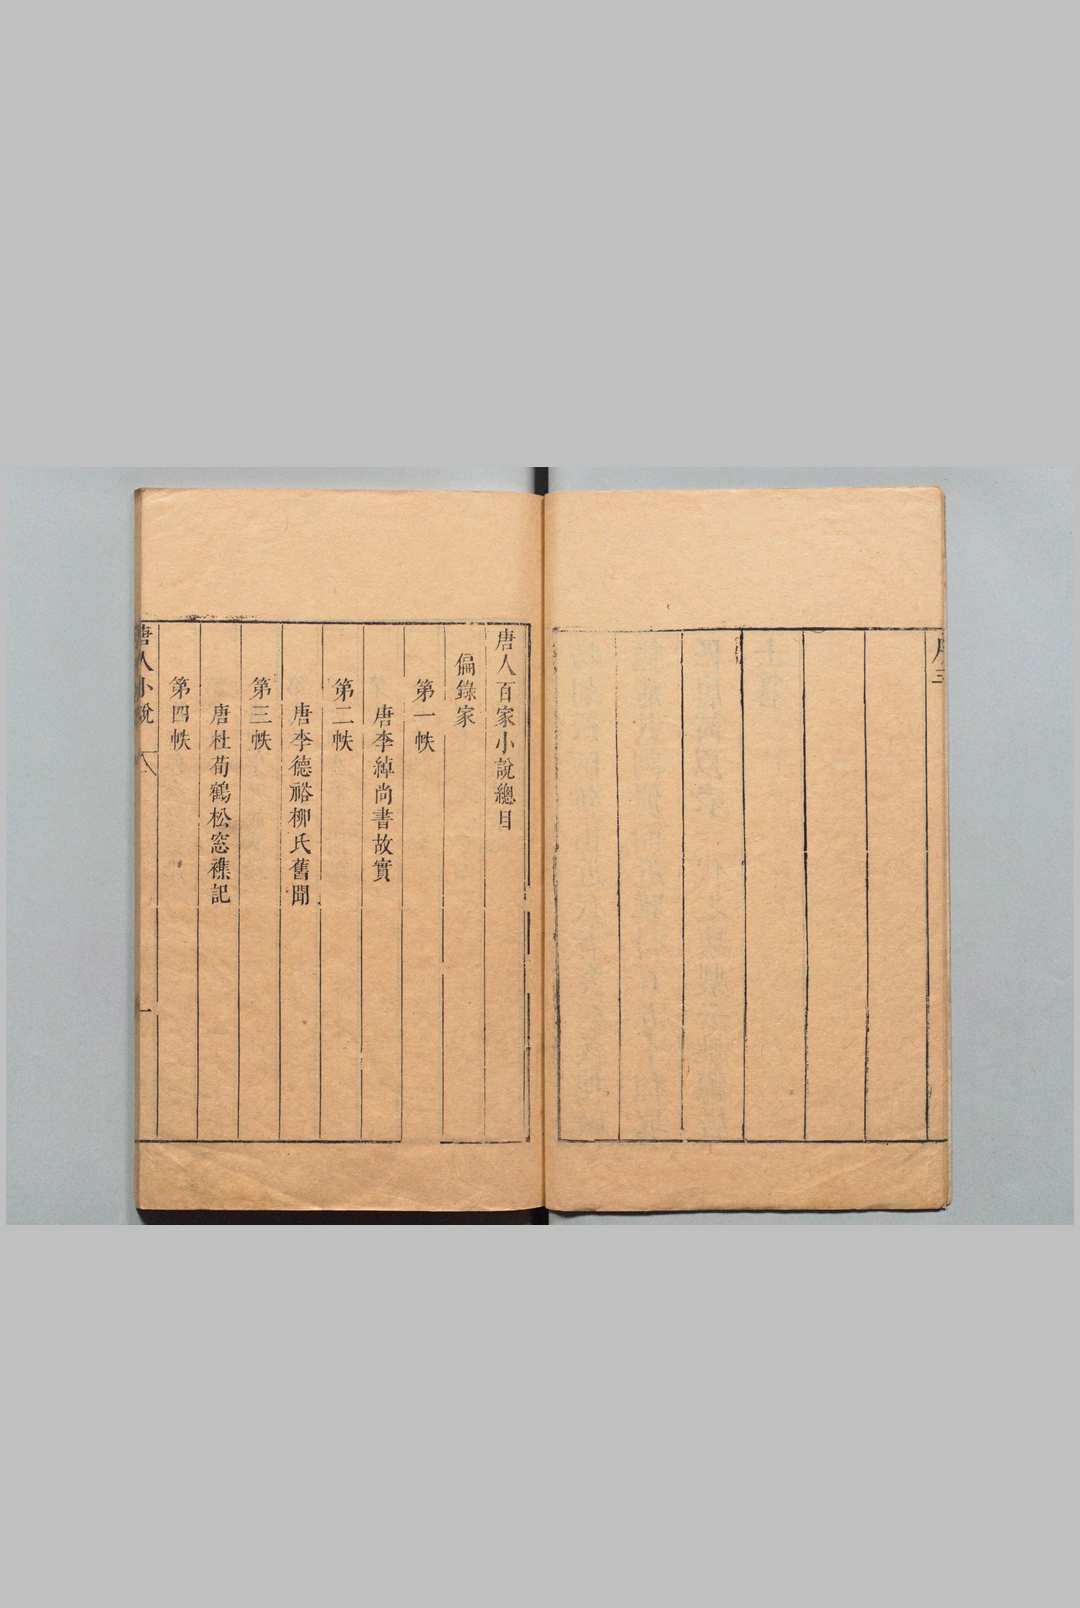 序三
唐人百家小說總目
偏錄家
第一帙
唐李綽尚書故實
第二帙
唐李德裕柳氏舊聞
第三帙
唐杜荀鶴松窓襍記
第四帙
唐人小說
一